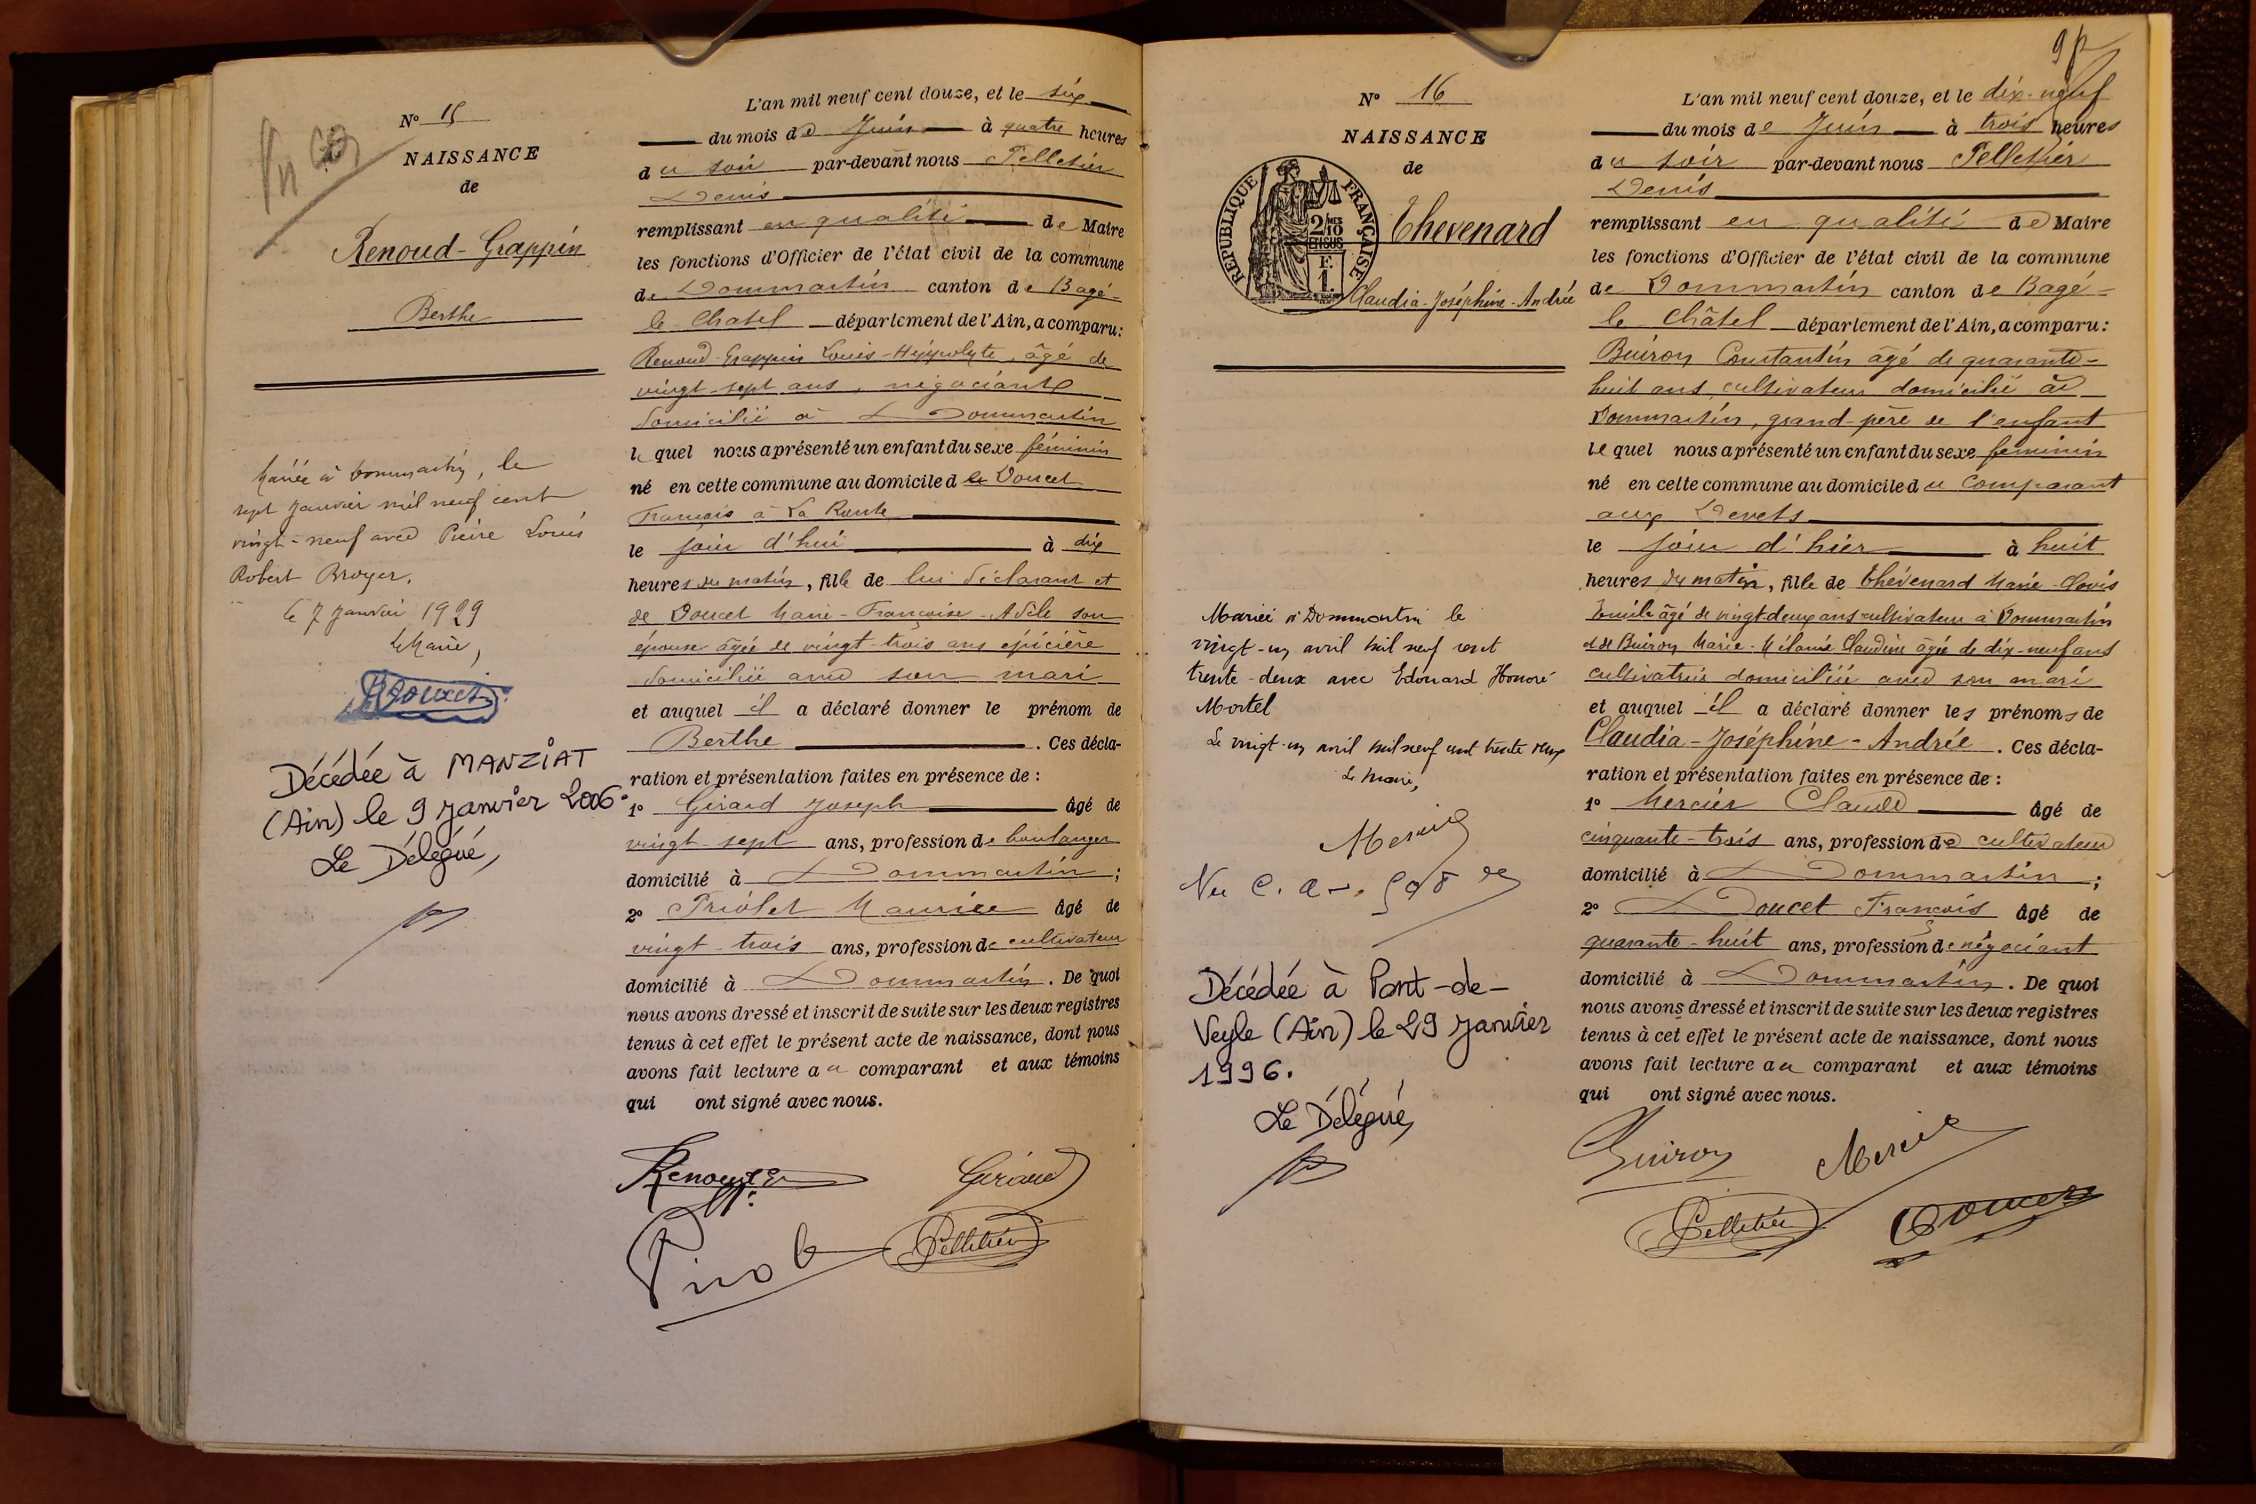 N° 15
NAISSANCE
de
Renoud-Grappin
Berthe
Mariée à Dommartin, le
sept janvier mil neuf cent
vingt-neuf avec Pierre Louis
Robert Broyer.
le 7 janvier 1929
Le Maire,
Décédée à MANZIAT
(Ain) le 9 janvier 2006.
Le Délégué,
L'an mil neuf cent douze, et le six
du mois de Juin à quatre heures
du soir par-devant nous Pelletier
Denis
remplissant en qualité de Maire
les fonctions d'Officier de l'état civil de la commune
de Dommartin canton de Bagé-
le-Chatel département de l'Ain, a comparu:
Renoud-Grappin Louis-Hyppolyte, âgé de
vingt-sept ans, négociant
domicilié à Dommartin
lequel nous a présenté un enfant du sexe féminin
né en cette commune au domicile de Doucet
François à La Route
le jour d'hui à dix
heures du matin, fille de lui déclarant et
de Doucet Marie-Françoise-Adèle son
épouse âgée de vingt-trois ans épicière
domiciliée avec son mari
et auquel il a déclaré donner le prénom de
Berthe . Ces décla-
ration et présentation faites en présence de :
1° Girard Joseph âgé de
vingt-sept ans, profession de boulanger
domicilié à Dommartin ;
2° Maurice âgé de
vingt-trois ans, profession de cultivateur
domicilié à Dommartin . De quoi
nous avons dressé et inscrit de suite sur les deux registres
tenus à cet effet le présent acte de naissance, dont nous
avons fait lecture au comparant et aux témoins
qui ont signé avec nous.
Girard
Pelletier
N° 16
NAISSANCE
de
RÉPUBLIQUE FRANÇAISE
2/10 EN SUS
F. 1.
Thevenard
Claudia-Joséphine-Andrée
Mariée à Dommartin le
vingt-un avril mil neuf cent
trente-deux avec Edouard Honoré
Mortel
Le vingt-un avril mil neuf cent trente deux
Le Maire,
Mercier
Décédée à Pont-de-
Veyle (Ain) le 29 janvier
1996.
Le Délégué,
L'an mil neuf cent douze, et le dix-neuf
du mois de Juin à trois heures
du soir par-devant nous Pelletier
Denis
remplissant en qualité de Maire
les fonctions d'Officier de l'état civil de la commune
de Dommartin canton de Bagé-
le Châtel département de l'Ain, a comparu:
Buiron Constantin âgé de quarante-
huit ans cultivateur domicilié à
Dommartin, grand-père de l'enfant
lequel nous a présenté un enfant du sexe féminin
né en cette commune au domicile du comparant
aux Devets
le jour d'hier à huit
heures du matin, fille de Thévenard Marie-Clovis
Emile âgé de vingt-deux ans cultivateur à Dommartin
et de Buiron Marie-Mélanie Claudine âgée de dix-neuf ans
cultivatrice domiciliée avec son mari
et auquel il a déclaré donner les prénoms de
Claudia-Joséphine-Andrée . Ces décla-
ration et présentation faites en présence de :
1° Mercier Claude âgé de
cinquante-trois ans, profession de cultivateur
domicilié à Dommartin ;
2° Doucet François âgé de
quarante-huit ans, profession de négociant
domicilié à Dommartin . De quoi
nous avons dressé et inscrit de suite sur les deux registres
tenus à cet effet le présent acte de naissance, dont nous
avons fait lecture au comparant et aux témoins
qui ont signé avec nous.
Buiron
Mercier
Pelletier
Doucet